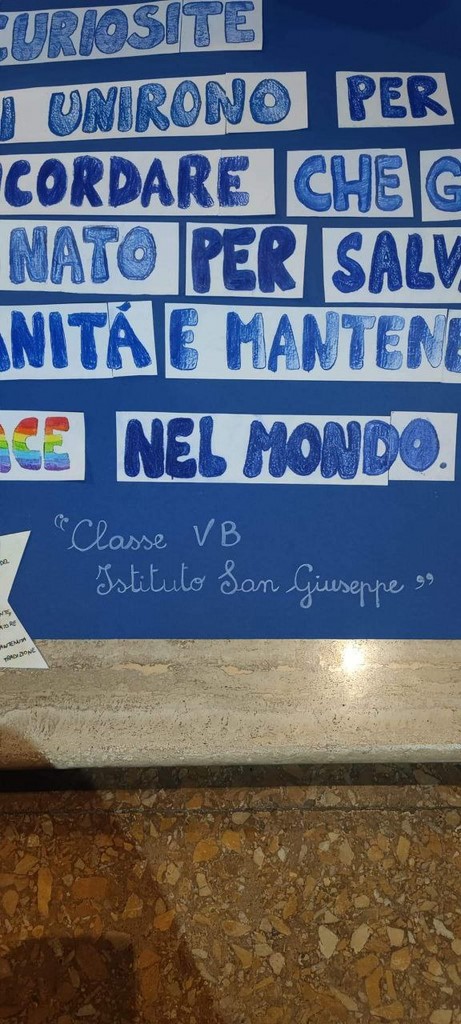 CURIOSITE
I UNIRONO PER
CORDARE CHE G
NATO PER SALV
ANITÁ E MANTENE
ACE NEL MONDO.
“Classe VB
Istituto San Giuseppe”